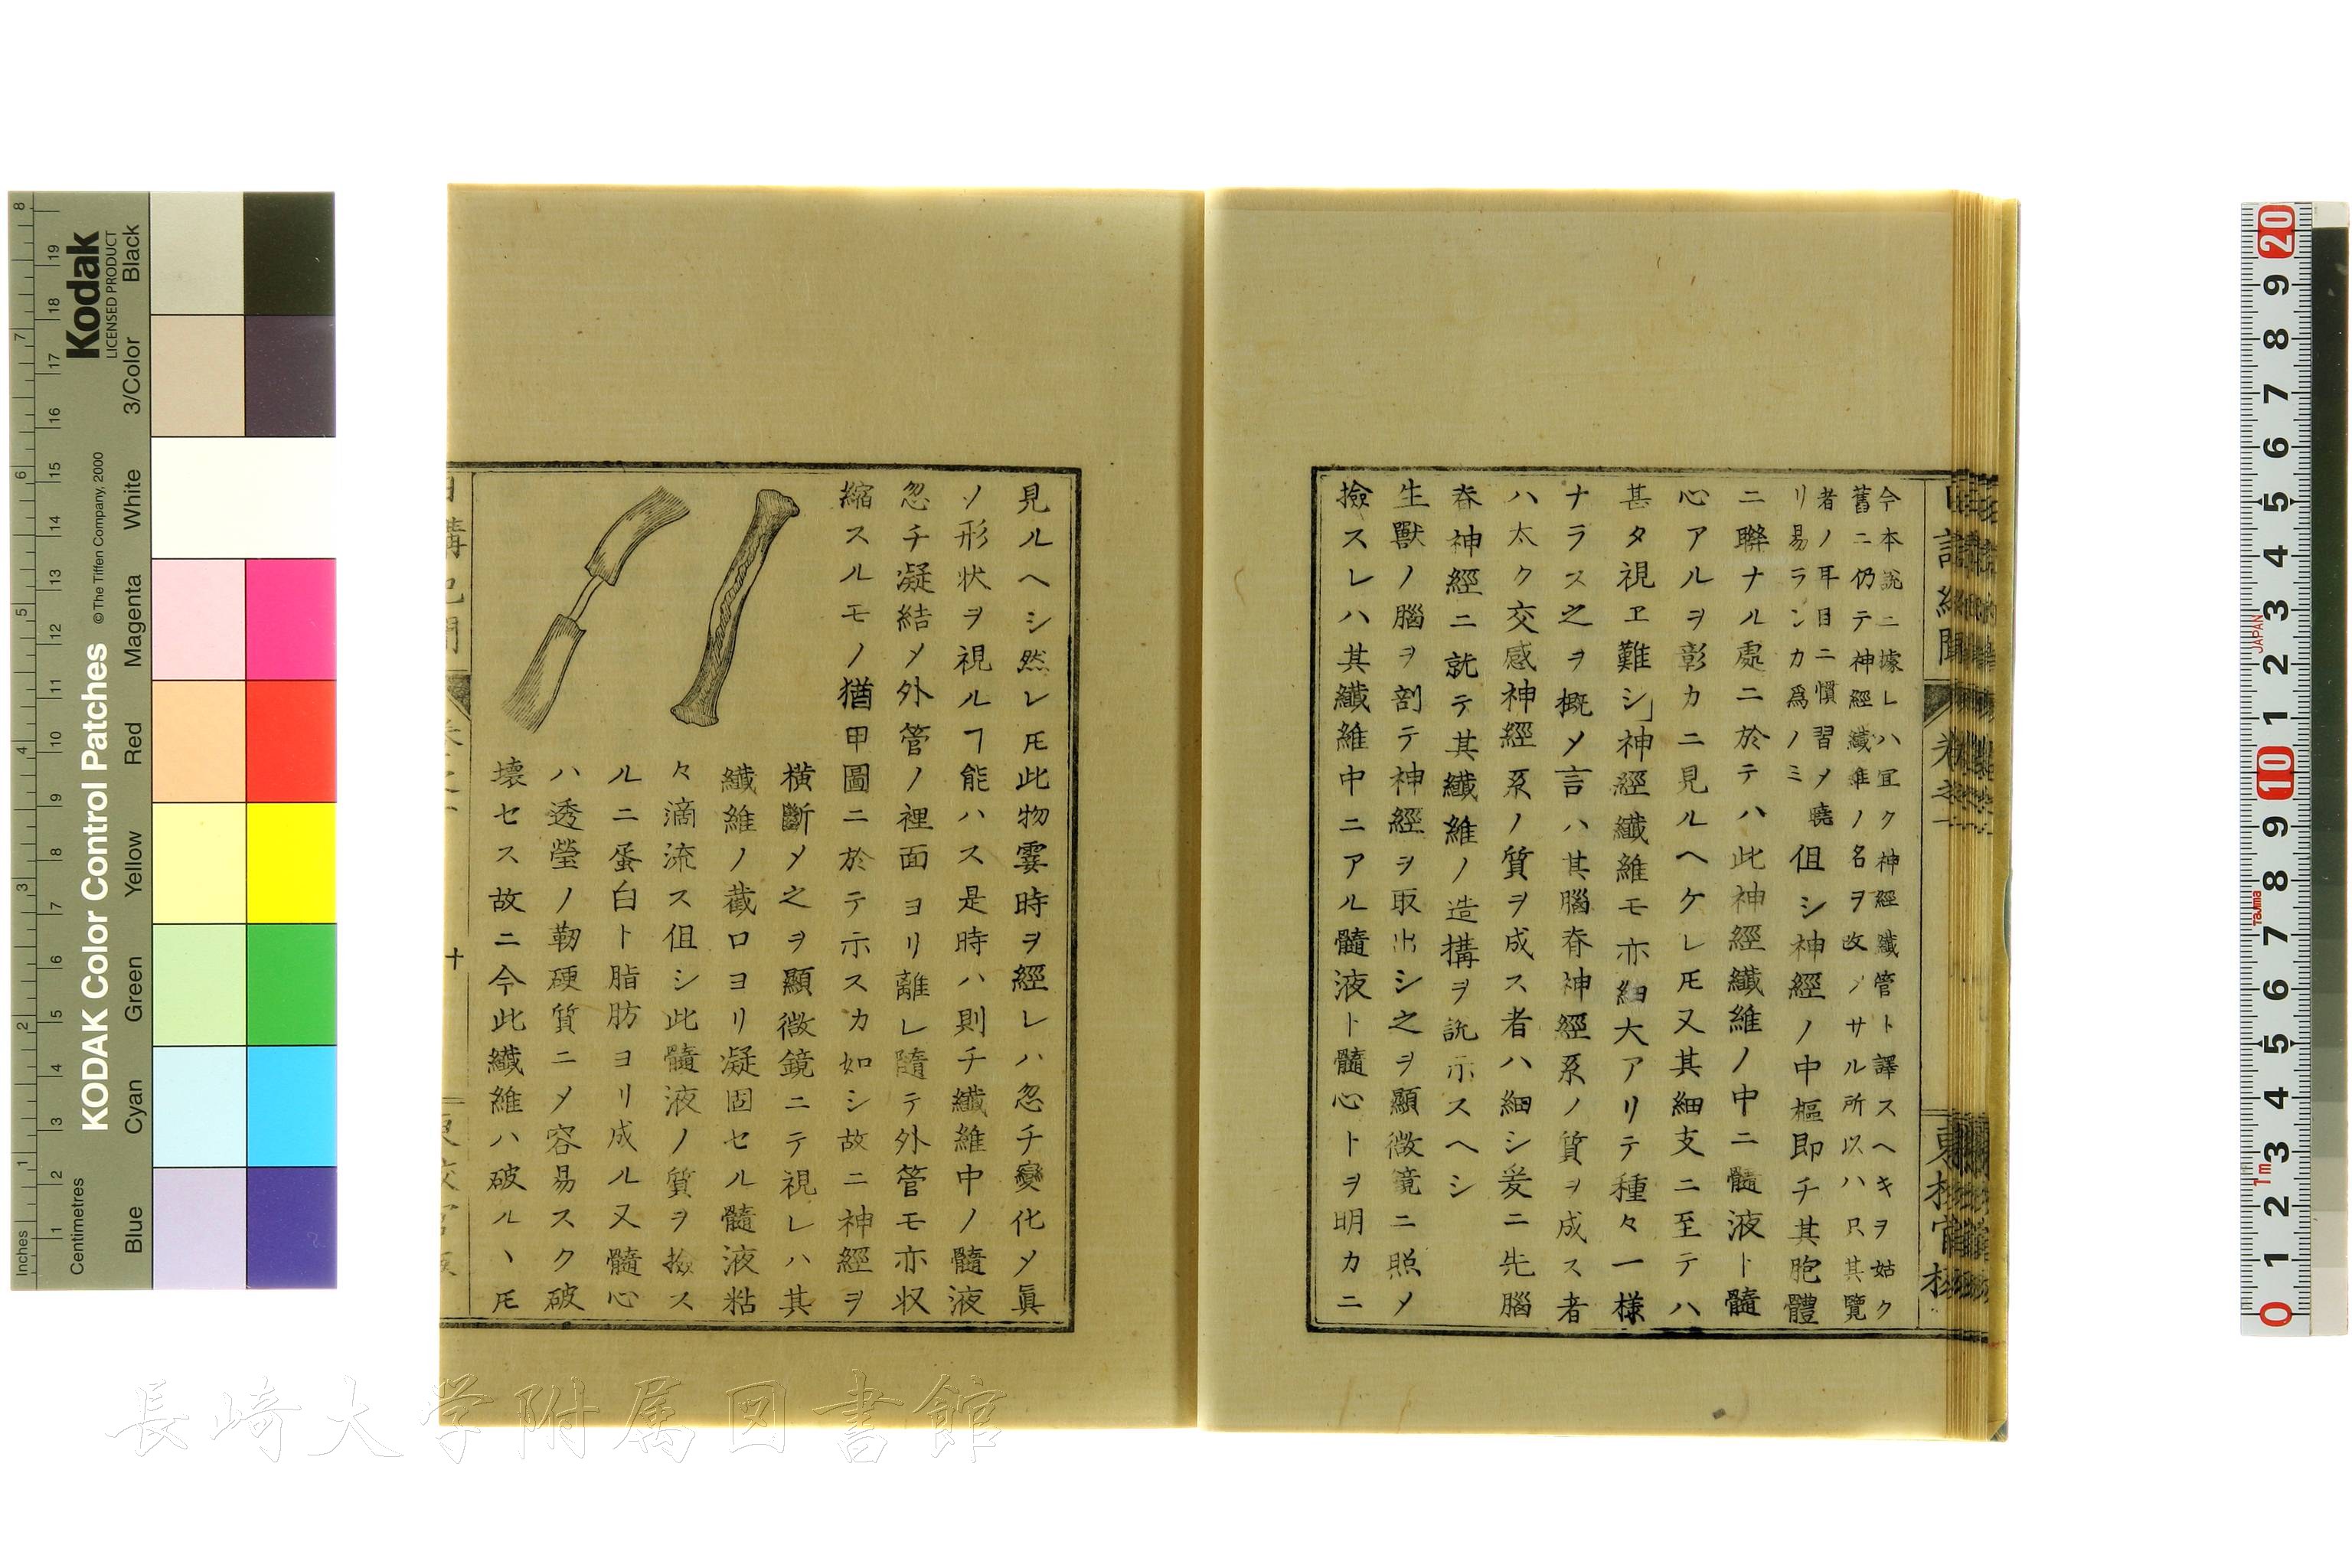 今本説ニ據レハ宜ク神經纎管ト譯スヘキヲ姑ク
舊ニ仍テ神經纎維ノ名ヲ改メサル所以ハ只其覽
者ノ耳目ニ慣習メ曉
リ易ランカ爲ノミ
伹シ神經ノ中樞即チ其胞體
ニ聯ナル處ニ於テハ此神經纎維ノ中ニ髓液ト髓
心アルヲ彰カニ見ルヘケレ𪜈又其細支ニ至テハ
甚タ視ヱ難シ」神經纎維モ亦細大アリテ種々一様
ナラス之ヲ概メ言ハ其腦脊神經系ノ質ヲ成ス者
ハ太ク交感神經系ノ質ヲ成ス者ハ細シ爰ニ先腦
脊神經ニ就テ其纎維ノ造構ヲ説示スヘシ
生獸ノ腦ヲ剖テ神經ヲ取出シ之ヲ顯微鏡ニ照メ
撿スレハ其纎維中ニアル髓液ト髓心トヲ明カニ
東校官板
見ルヘシ然レ𪜈此物霎時ヲ經レハ忽チ變化メ眞
ノ形状ヲ視ルヿ能ハス是時ハ則チ纎維中ノ髓液
忽チ凝結メ外管ノ裡面ヨリ離レ隨テ外管モ亦収
縮スルモノ猶甲圖ニ於テ示スカ如シ故ニ神經ヲ
横斷メ之ヲ顯微鏡ニテ視レハ其
纎維ノ截口ヨリ凝固セル髓液粘
々滴流ス伹シ此髓液ノ質ヲ撿ス
ルニ蛋白ト脂肪ヨリ成ル又髓心
ハ透瑩ノ靭硬質ニメ容易スク破
壊セス故ニ今此纎維ハ破ルヽ𪜈
十
KODAK Color Control Patches
© The Tiffen Company, 2000
Kodak
LICENSED PRODUCT
Inches
Centimetres
Blue Cyan Green Yellow Red Magenta White 3/Color Black
1 2 3 4 5 6 7 8
1 2 3 4 5 6 7 8 9 10 11 12 13 14 15 16 17 18 19
0 1 2 3 4 5 6 7 8 9 10 1 2 3 4 5 6 7 8 9 20
1m Tajima JAPAN
長崎大学附属図書館